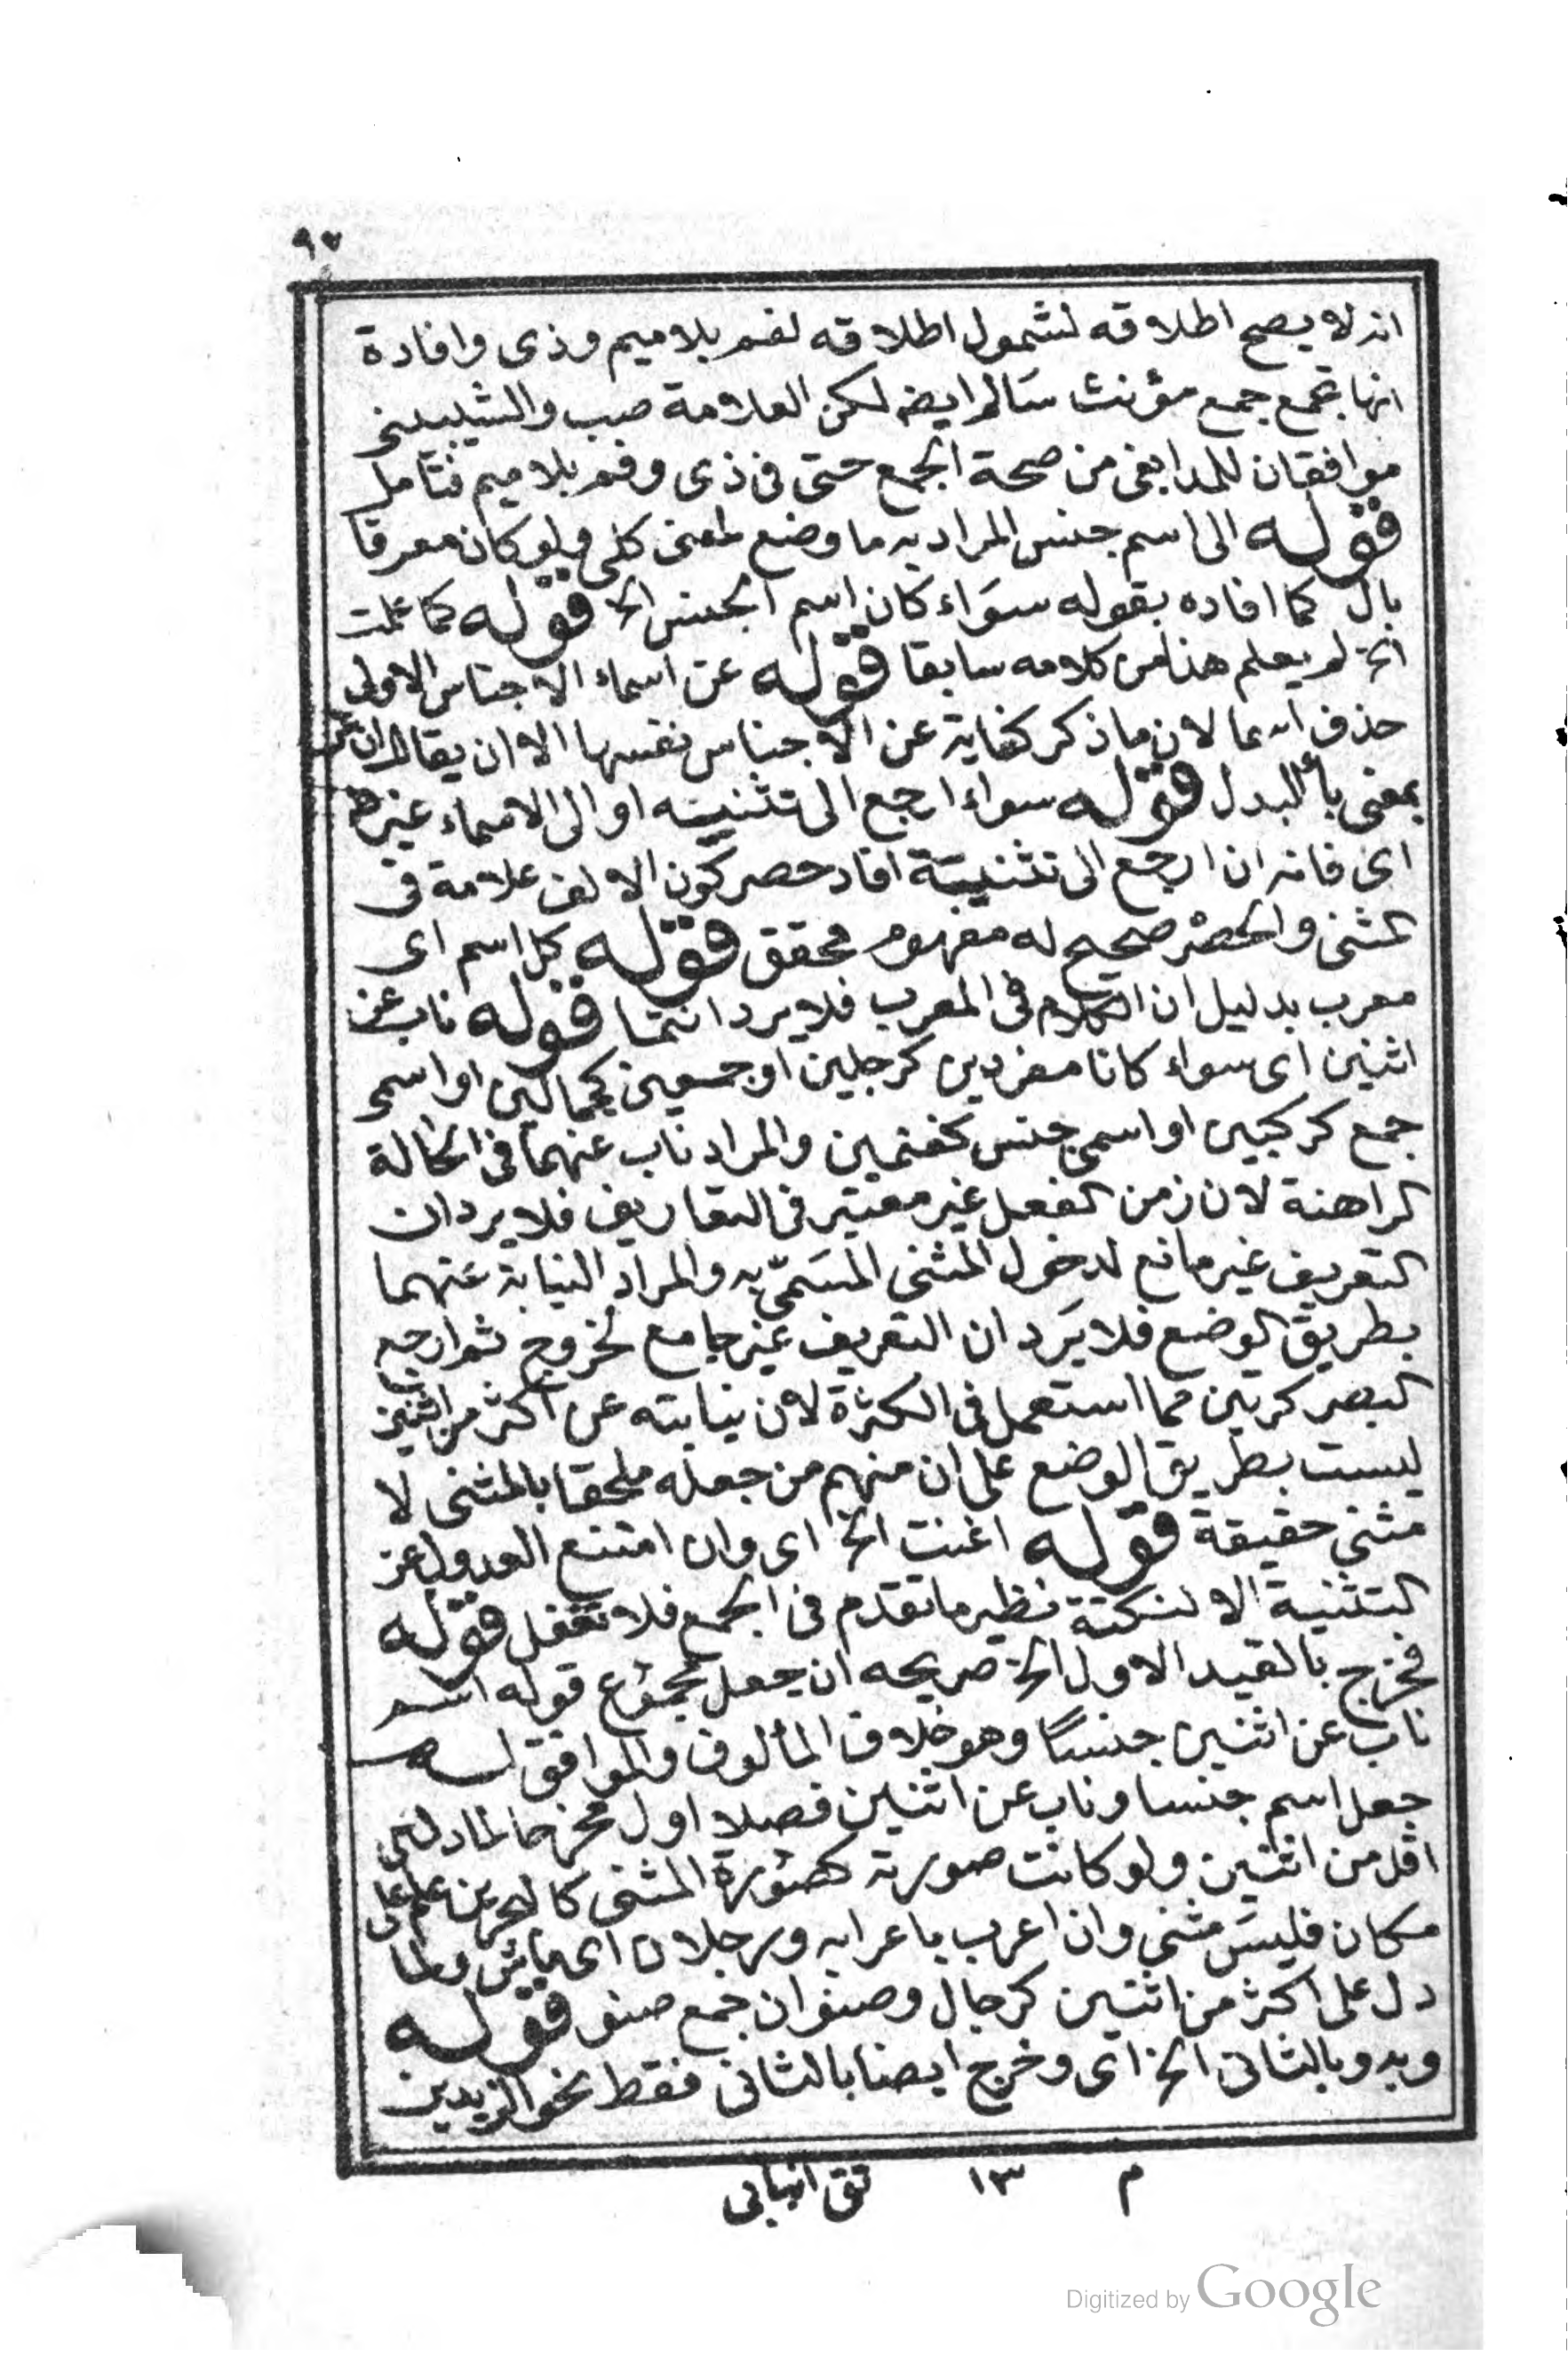 ٩٧
انه لا يصح اطلاقه لشمول اطلاقه لفم بلا ميم وذى وافادة
انها تجمع جمع مؤنث سالم ايضا لكن العلامة صب والشيبينى
موافقان للمدابغى من صحة الجمع حتى فى ذى وفم بلا ميم فتامل
قوله الى اسم جنس المراد به ما وضع لمعنى كلى ولو كان معرفا
بال كما افاده بقوله سواء كان اسم الجنس الخ قوله كما علمت
الخ لم يعلم هذا من كلامه سابقا قوله عن اسماء الاجناس الاولى
حذف اسما لان ما ذكر كناية عن الاجناس نفسها الا ان يقال ان عن
بمعنى باء البدل قوله سواء ارجع الى تثنيته او الى الاسماء غيرها
اى فانه ان ارجع الى تثنيته افاد حصر كون الالف علامة فى
المثنى والحصر صحيح له مفهوم محقق قوله كل اسم اى
معرب بدليل ان الكلام فى المعرب فلا يرد انتما قوله ناب عن
اثنين اى سواء كانا مفردين كرجلين او جمعين كجمالين او اسمى
جمع كركبين او اسمى جنس كغنمين والمراد ناب عنهما فى الحالة
الراهنة لان زمن الفعل غير معتبر فى التعاريف فلا يرد ان
التعريف غير مانع لدخول المثنى المسمّى به والمراد النيابة عنهما
بطريق الوضع فلا يرد ان التعريف غير جامع لخروج ثم ارجع
البصر كرتين مما استعمل فى الكثرة لان نيابته عن اكثر من اثنين
ليست بطريق الوضع على ان منهم من جعله ملحقا بالمثنى لا
مثنى حقيقة قوله اغنت الخ اى وان امتنع العدول عن
التثنية الا لنكتة نظير ما تقدم فى الجمع فلا تغفل قوله
فخرج بالقيد الاول الخ صريحه ان جعل مجموع قوله اسم
ناب عن اثنين جنسا وهو خلاف المألوف والموافق له
جعل اسم جنسا وناب عن اثنين فصلا اول مخرجا لما دل على
اقل من اثنين ولو كانت صورته كصورة المثنى كالبحرين علم على
مكان فليس مثنى وان اعرب باعرابه ورجلان اى ماش ولما
دل على اكثر من اثنين كرجال وصنوان جمع صنو قوله
وبه وبالثانى الخ اى وخرج ايضا بالثانى فقط نحو الزيدين
م ١٣ تق انبابى
Digitized by Google